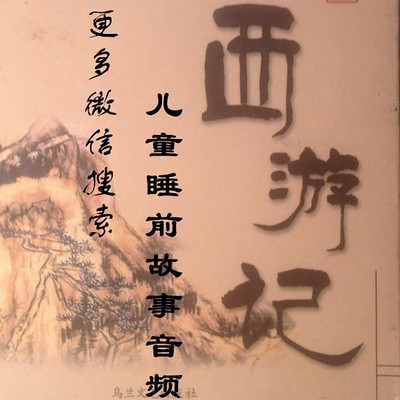 西游记
儿童睡前故事音频
更多微信搜索
乌兰文
社